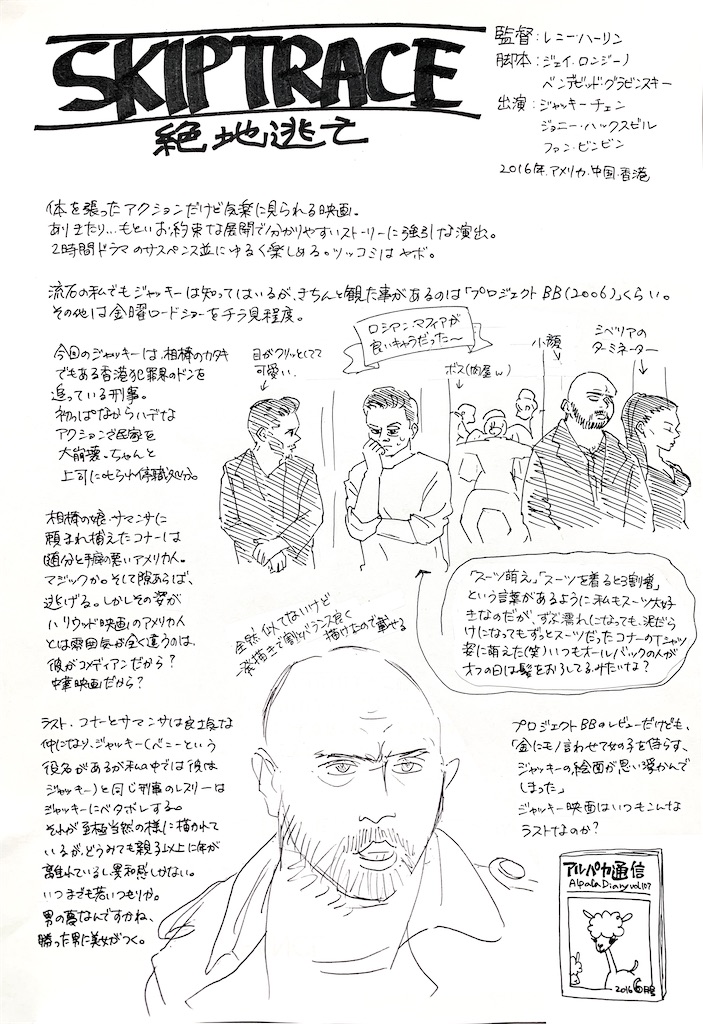 SKIPTRACE
絶地逃亡
監督：レニー・ハーリン
脚本：ジェイ・ロンジーノ
ベンデビッド・グラビンスキー
出演：ジャッキーチェン
ジョニー・ノックスビル
ファン・ビンビン
2016年.アメリカ.中国.香港
体を張ったアクションだけど気楽に見られる映画。
ありきたり…もといお約束な展開で分かりやすいストーリーに強引な演出。
2時間ドラマのサスペンス並にゆるく楽しめる。ツッコミはヤボ。
流石の私でもジャッキーは知ってはいるが、きちんと観た事があるのは「プロジェクトBB(2006)」くらい。
その他は金曜ロードショーをチラ見程度。
今回のジャッキーは、相棒のカタキ
でもある香港犯罪界のドンを
追っている刑事。
初っぱなからハデな
アクションで民家を
大崩壊。ちゃんと
上司に叱られ停職処分。
目がクリッとしてて
可愛い。
ロシアン・マフィアが
良いキャラだった〜
ボス(肉屋w)
小顔
シベリアの
ターミネーター
相棒の娘・サマンサに
頼まれ捕えたコナーは
随分と手癖の悪いアメリカ人。
マジックか。そして隙あらば、
逃げる。しかしその姿が
ハリウッド映画のアメリカ人
とは雰囲気が全く違うのは、
彼がコメディアンだから？
中華映画だから？
「スーツ萌え」「スーツを着ると3割増」
という言葉があるように私もスーツ大好
きなのだが、ずぶ濡れになっても、泥だら
けになってもずっとスーツだったコナーのTシャツ
姿に萌えた(笑)いつもオールバックの人が
オフの日は髪をおろしてる.みたいな？
全然似てないけど
一発描きで割とバランス良く
描けたので載せる
ラスト、コナーとサマンサは良い
仲になり、ジャッキー(ベニーという
役名があるが私の中では彼は
ジャッキー)と同じ刑事のレスリーは
ジャッキーにベタボレする。
それが至極当然の様に描かれて
いるが、どうみても親子以上に年が
離れているし異和感しかない。
いつまでも若いつもりか。
男の夢なんですかね、
勝った男に美女がつく。
プロジェクトBBのレビューだけども、
「金にモノ言わせて女の子を侍らす、
ジャッキーの絵面が思い浮かんで
しまった」
ジャッキー映画はいつもこんな
ラストなのか？
アルパカ通信
Alpaca Diary vol.107
2016 6月号